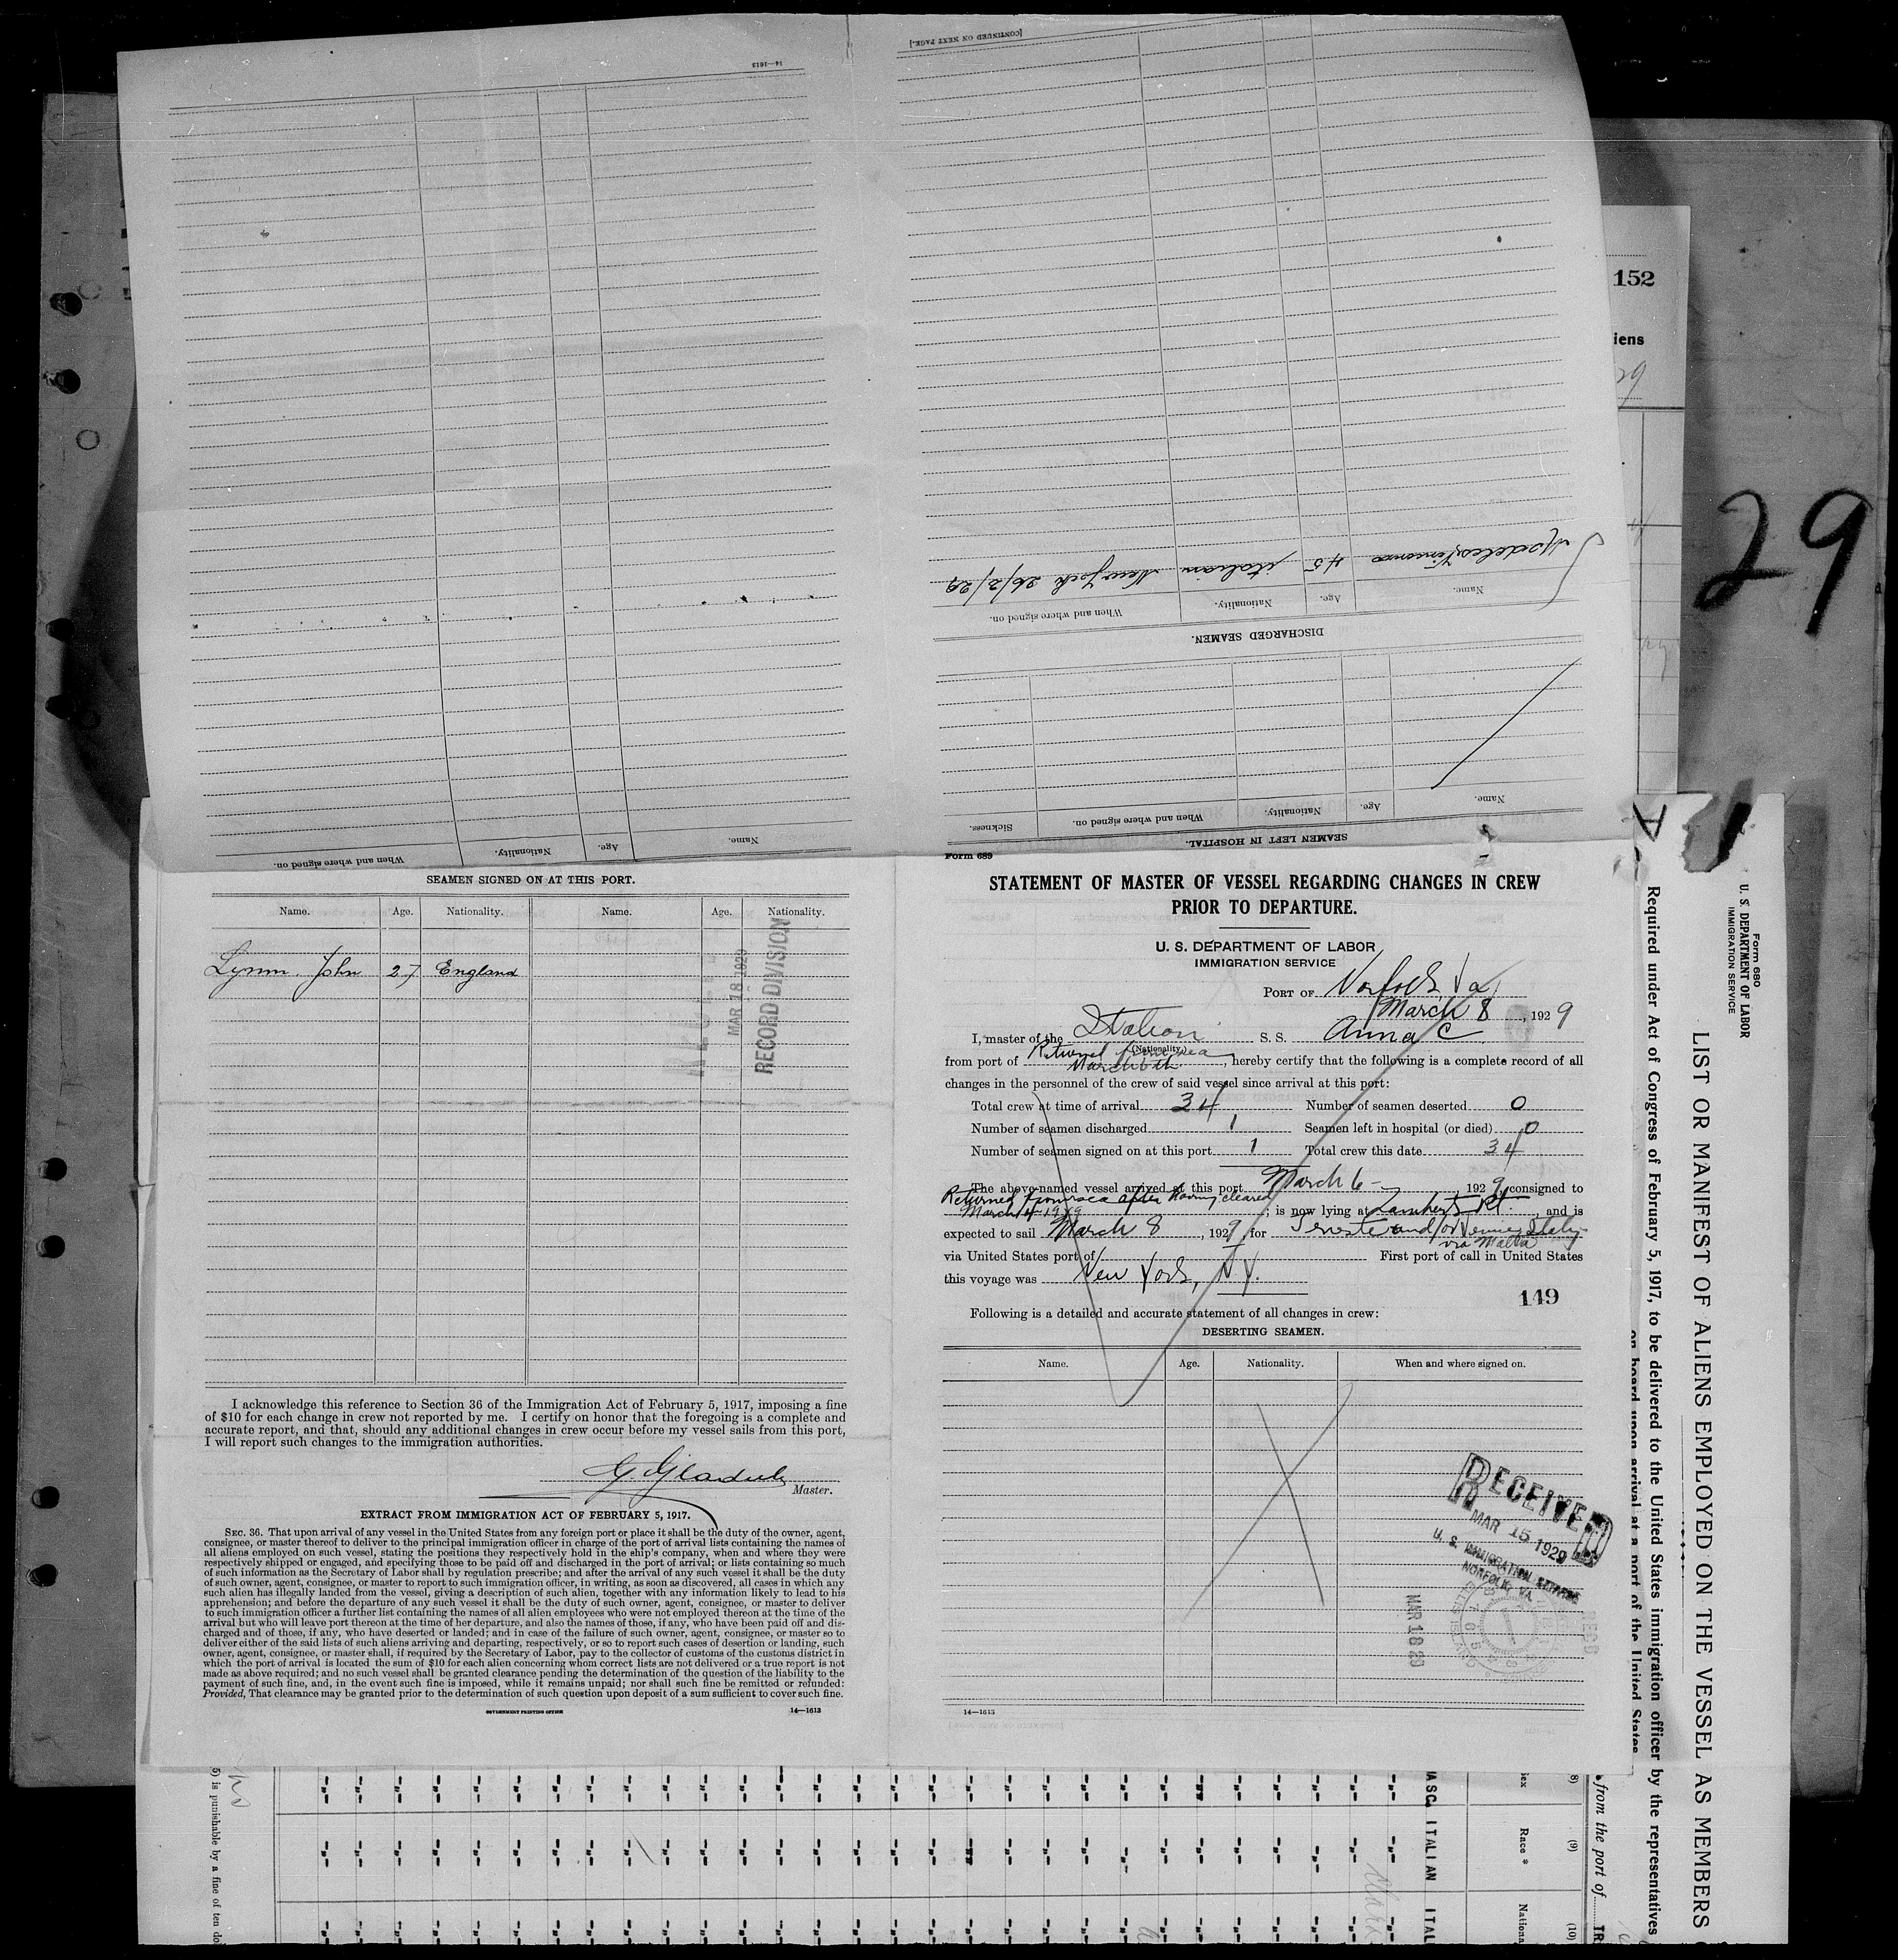 [CONTINUED ON NEXT PAGE.]
14—1613
152
iens
29
29
italian New York 26/2/29
45
Name. Age. Nationality. When and where signed on.
DISCHARGED SEAMEN.
Name. Age. Nationality. When and where signed on. Sickness.
SEAMEN LEFT IN HOSPITAL.
Name. Age. Nationality. When and where signed on.
SEAMEN SIGNED ON AT THIS PORT.
Name. Age. Nationality. Name. Age. Nationality.
Lynn. John 27 England
MAR 18 1929
RECORD DIVISION
I acknowledge this reference to Section 36 of the Immigration Act of February 5, 1917, imposing a fine
of $10 for each change in crew not reported by me. I certify on honor that the foregoing is a complete and
accurate report, and that, should any additional changes in crew occur before my vessel sails from this port,
I will report such changes to the immigration authorities.
Master.
EXTRACT FROM IMMIGRATION ACT OF FEBRUARY 5, 1917.
SEC. 36. That upon arrival of any vessel in the United States from any foreign port or place it shall be the duty of the owner, agent,
consignee, or master thereof to deliver to the principal immigration officer in charge of the port of arrival lists containing the names of
all aliens employed on such vessel, stating the positions they respectively hold in the ship's company, when and where they were
respectively shipped or engaged, and specifying those to be paid off and discharged in the port of arrival; or lists containing so much
of such information as the Secretary of Labor shall by regulation prescribe; and after the arrival of any such vessel it shall be the duty
of such owner, agent, consignee, or master to report to such immigration officer, in writing, as soon as discovered, all cases in which any
such alien has illegally landed from the vessel, giving a description of such alien, together with any information likely to lead to his
apprehension; and before the departure of any such vessel it shall be the duty of such owner, agent, consignee, or master to deliver
to such immigration officer a further list containing the names of all alien employees who were not employed thereon at the time of the
arrival but who will leave port thereon at the time of her departure, and also the names of those, if any, who have been paid off and dis-
charged and of those, if any, who have deserted or landed; and in case of the failure of such owner, agent, consignee, or master so to
deliver either of the said lists of such aliens arriving and departing, respectively, or so to report such cases of desertion or landing, such
owner, agent, consignee, or master shall, if required by the Secretary of Labor, pay to the collector of customs of the customs district in
which the port of arrival is located the sum of $10 for each alien concerning whom correct lists are not delivered or a true report is not
made as above required; and no such vessel shall be granted clearance pending the determination of the question of the liability to the
payment of such fine, and, in the event such fine is imposed, while it remains unpaid; nor shall such fine be remitted or refunded:
Provided, That clearance may be granted prior to the determination of such question upon deposit of a sum sufficient to cover such fine.
GOVERNMENT PRINTING OFFICE 14—1613
Form 689
STATEMENT OF MASTER OF VESSEL REGARDING CHANGES IN CREW
PRIOR TO DEPARTURE.
U. S. DEPARTMENT OF LABOR
IMMIGRATION SERVICE
PORT OF Norfolk, Va
March 8, 1929
I, master of the Italian S. S. Anna C.
(Nationality)
from port of Returned from sea March 6th, hereby certify that the following is a complete record of all
changes in the personnel of the crew of said vessel since arrival at this port:
Total crew at time of arrival 34 Number of seamen deserted 0
Number of seamen discharged 1 Seamen left in hospital (or died) 0
Number of seamen signed on at this port 1 Total crew this date 34
The above-named vessel arrived at this port March 6 - 1929, consigned to
Returned from sea after having cleared
March 4 1929; is now lying at Lamberts Pt., and is
expected to sail March 8, 1929, for Trieste and/or Venice Italy
via Malta
via United States port of First port of call in United States
this voyage was New York, N.Y.
149
Following is a detailed and accurate statement of all changes in crew:
DESERTING SEAMEN.
Name. Age. Nationality. When and where signed on.
RECEIVED
MAR 15 1929
U. S. IMMIGRATION SERVICE
NORFOLK, VA.
MAR 18 29
RECD
14—1613
Form 680
U. S. DEPARTMENT OF LABOR
IMMIGRATION SERVICE
LIST OR MANIFEST OF ALIENS EMPLOYED ON THE VESSEL AS MEMBERS
Required under Act of Congress of February 5, 1917, to be delivered to the United States immigration officer by the representatives
on board upon arrival at a port of the United States
from the port of TR
(8) (9) (10)
Sex Race * Nationa
MASC. ITALIAN ITAL
5) is punishable by a fine of ten dol